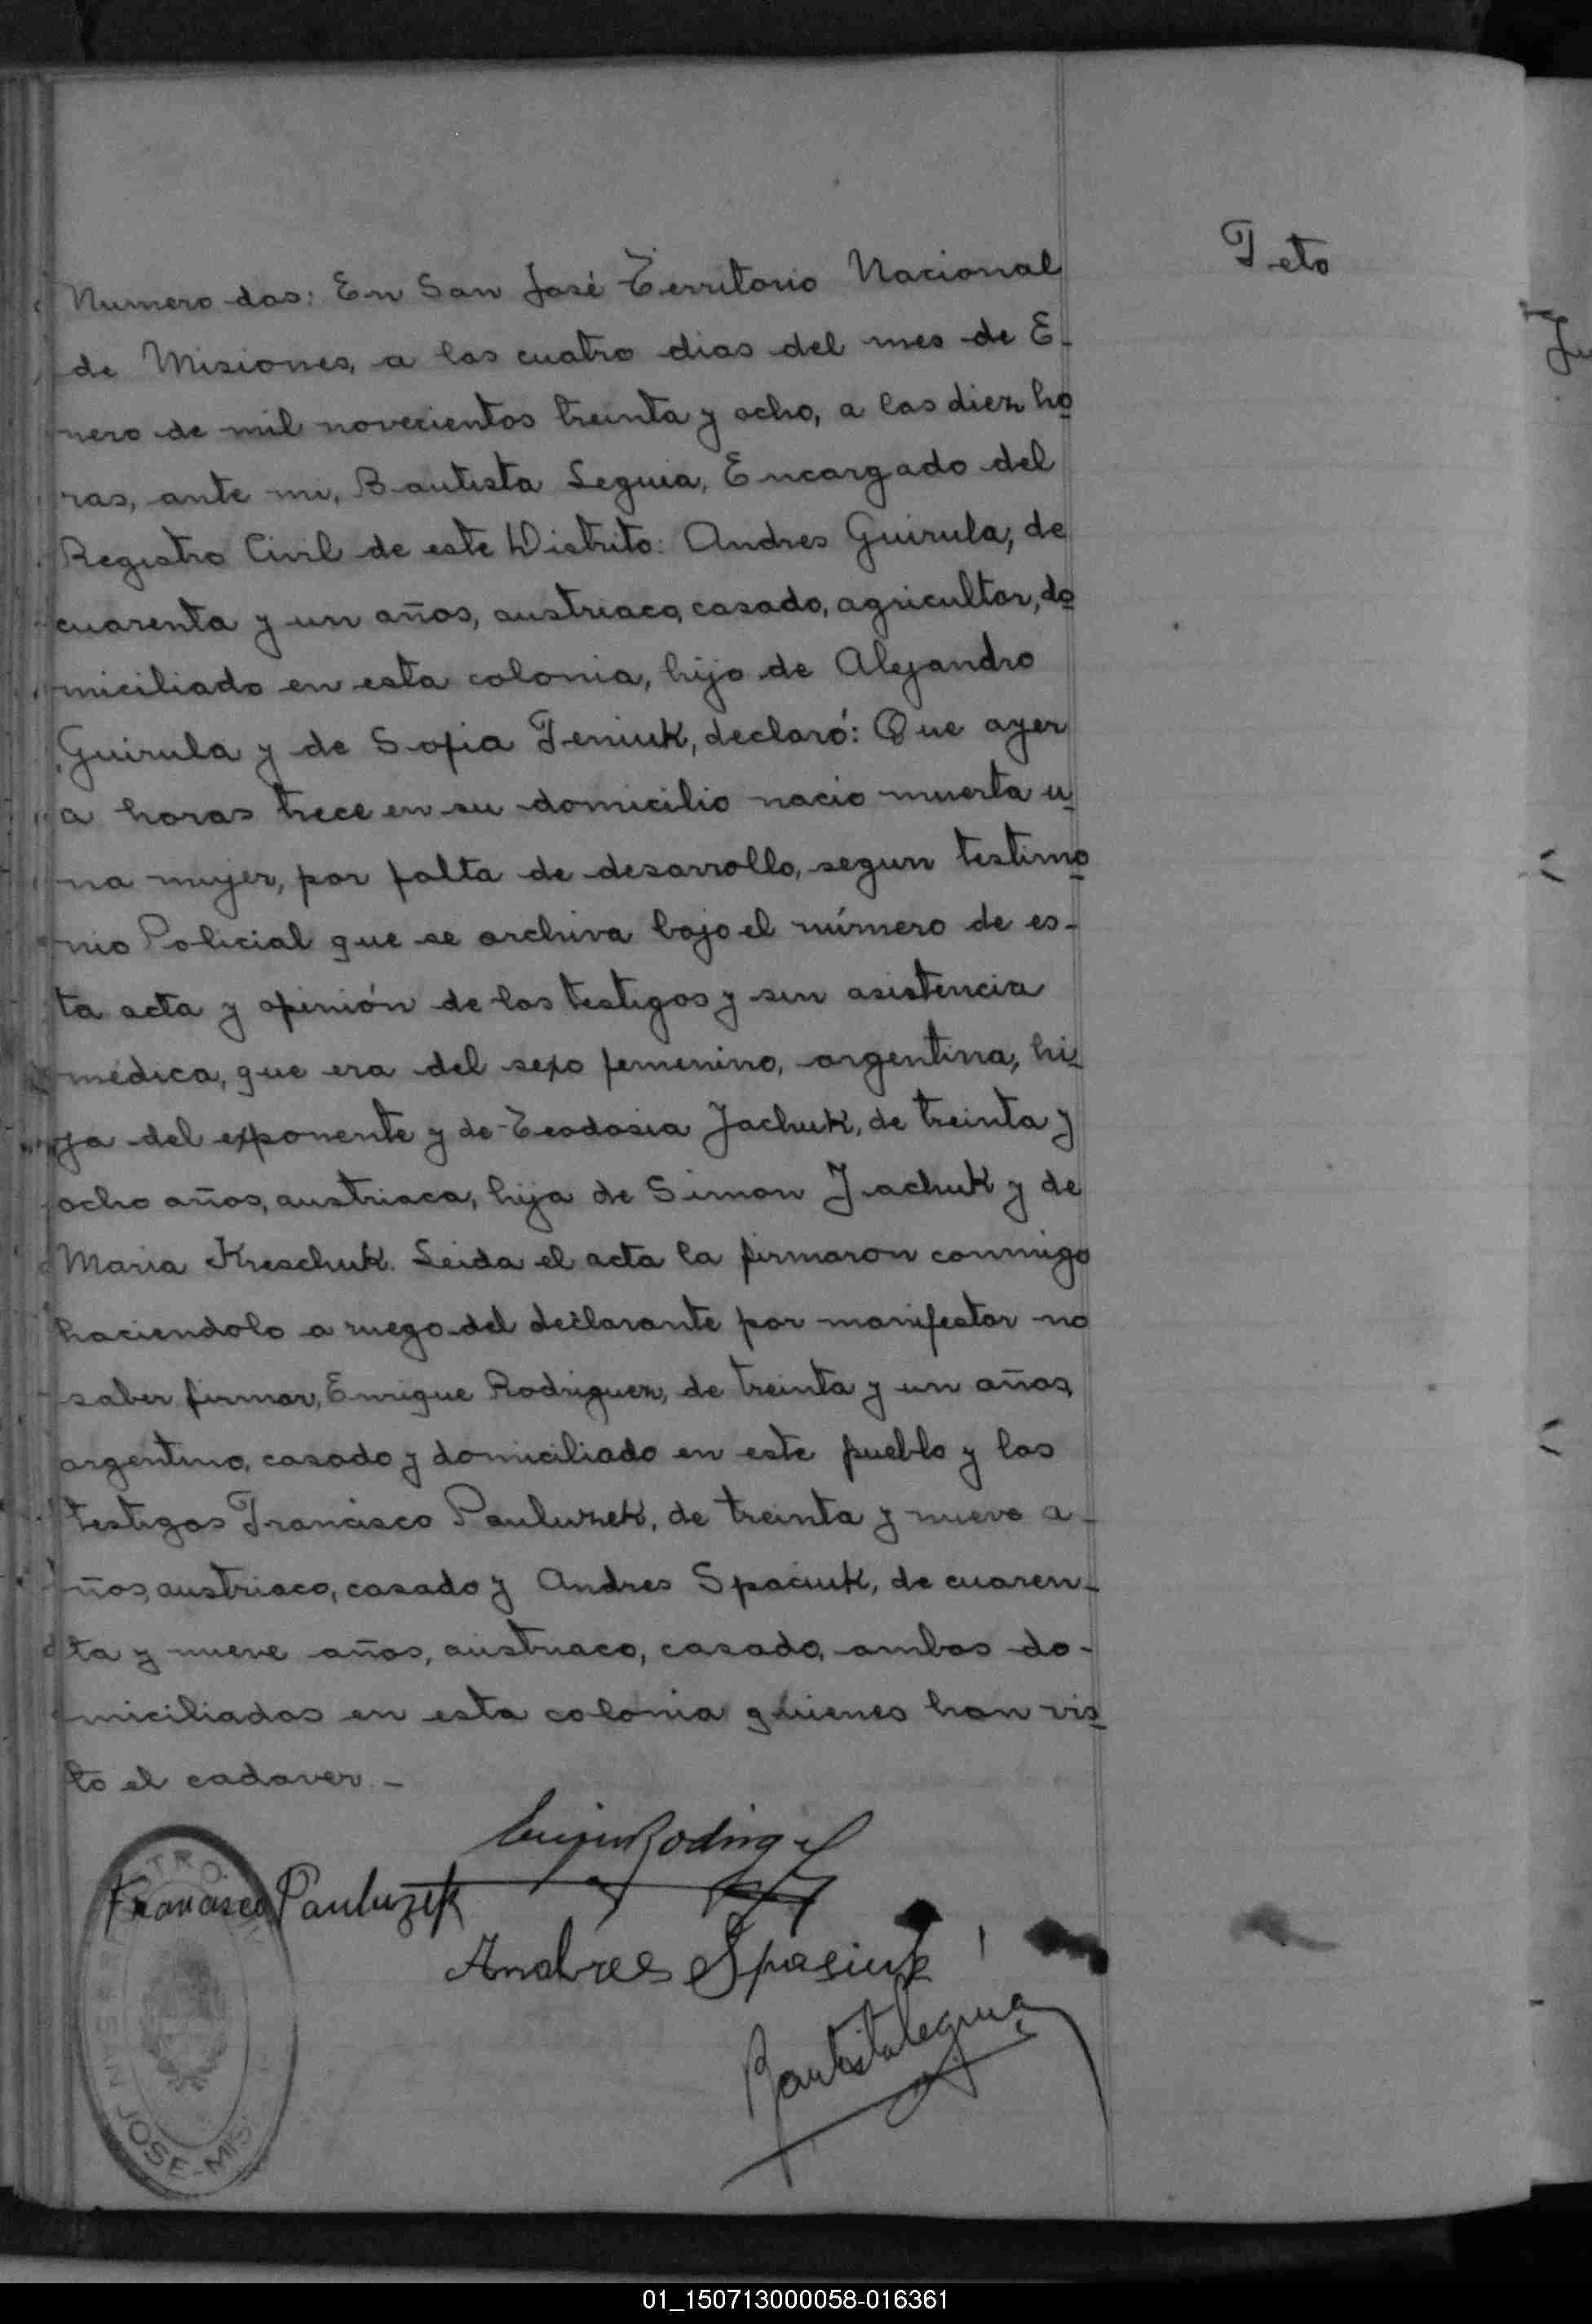 Feto
Numero dos: En San José Territorio Nacional
de Misiones, a los cuatro dias del mes de E-
nero de mil novecientos treinta y ocho, a las diez ho
ras, ante mi, Bautista Seguia, Encargado del
Registro Civil de este Distrito: Andres Guirula, de
cuarenta y un años, austriaco, casado, agricultor, do
miciliado en esta colonia, hijo de Alejandro
Guirula y de Sofia Feniuk, declaró: Que ayer
a horas trece en su domicilio nacio muerta u
na mujer, por falta de desarrollo, segun testimo
nio Policial que se archiva bajo el número de es-
ta acta y opinión de los testigos y sin asistencia
médica, que era del sexo femenino, argentina, hi
ja del exponente y de Teodosia Jachuk, de treinta y
ocho años, austriaca, hija de Simon Jachuk y de
Maria Kreschuk. Leida el acta la firmaron conmigo
haciendolo a ruego del declarante por manifestar no
saber firmar, Enrique Rodriguez, de treinta y un años,
argentino, casado y domiciliado en este pueblo y los
testigos Francisco Pauluzek, de treinta y nueve a-
ños, austriaco, casado y Andres Spaciuk, de cuaren-
ta y nueve años, austriaco, casado, ambos do-
miciliados en esta colonia quienes han vis
to el cadaver. -
Francisco Pauluzek
Andres Spasiuk
SAN JOSE-MIS
01_150713000058-016361